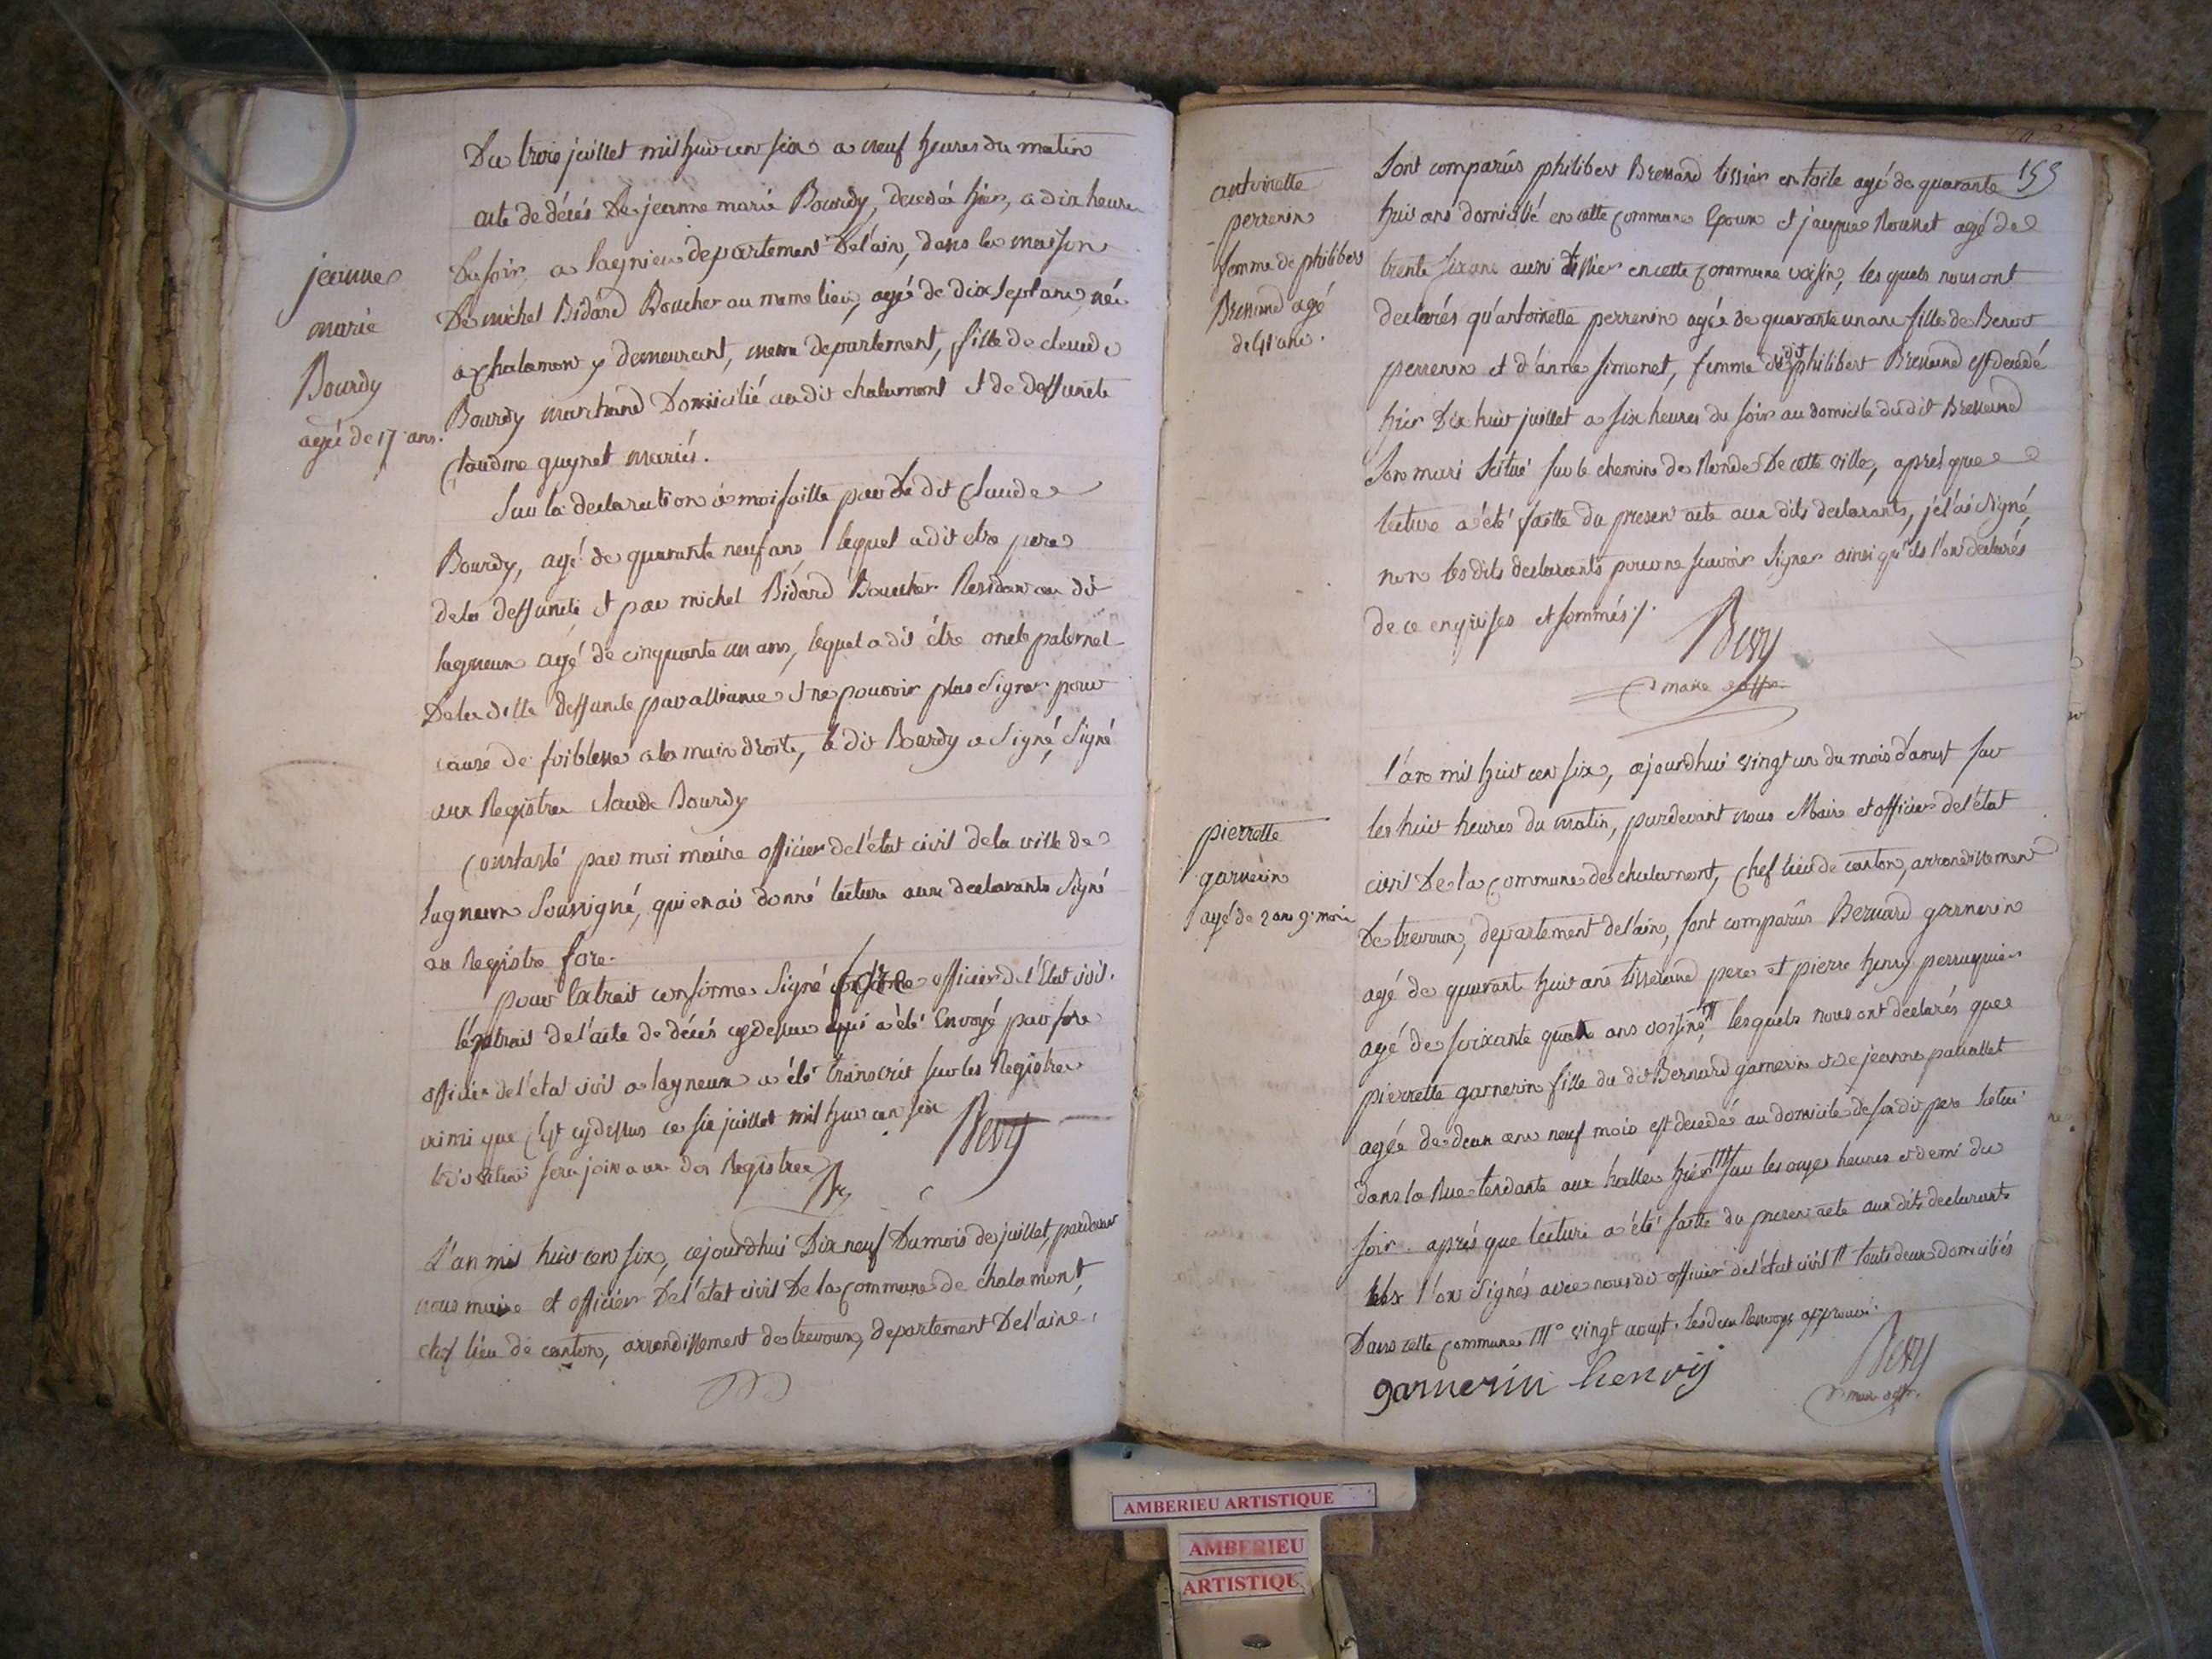 Du trois juillet mil huit cen six a neuf heures du matin
acte de décés De jeanne marie Bourdy, decedée hier, a dix heure
Du soir, a lagnieu departement De l'ain, dans la maison
De michel Bidard Boucher au meme lieu, agée de dix sept ans, née
a chalamon y demeurant, meme departement, fille de claude
Bourdy marchand Domicilié au dit chalamont et de deffunete
Claudine guynet mariés.
Sur la declaration a moi faitte par Le dit Claude
Bourdy, agé de quarante neuf ans, lequel a dit etre pere
de la deffunete et par michel Bidard Boucher Residan au dit
lagneux agé de cinquante un ans, lequel a dit être oncle paternel
De la ditte deffunete par alliance et ne pouvoir plus signer pour
cause de foiblesse a la main droite, le dit Bourdy a signé, signé
aux Registre Claude Bourdy
Constaté par moi maire officier de l'état civil de la ville de
lagneux Soussigné, qui en ai donné lecture aux declarants signé
au Registre fore.
pour Extrait conforme signé fore officier de l'Etat civil.
l'extrait de l'acte de décés cy dessus qui a été Envoyé par fore
officier de l'état civil a lagneux a été transcrit sur les Registre
ainsi que cy dessus ce six juillet mil huit cen six
sera join a un des Registres
Bevy
L'an mil huit cen six, cejourdhui Dix neuf Du mois de juillet, pardevant
nous maire et officier De l'état civil De la Commune de chalamont,
chef lieu de canton, arrondissement de trevoux, departement De l'ain,
jeanne
marie
Bourdy
agée de 17 ans.
155
sont comparûs philibert Bressand tissier en toile agé de quarante
huit ans domicilié en cette Commune Epoux et jacque Rousset agé de
trente six ans aussi tissier en cette Commune voisin, les quels nous ont
declarés qu'antoinette perrenin agée de quarante un ans fille de Benoit
perrenin et d'anne simonet, femme du dit philibert Bressand est decedé
hier Dix huit juillet a six heures du soir au domicile du dit Bressand
son mari scitué sur le chemin de Ronde De cette ville, aprés que
lecture a été faitte du presen acte aux dits declarants, je l'ai signé
non les dits declarants pour ne scavoir signer ainsi qu'ils l'on declarés
de ce enquises et sommés ./.
Bevy
maire offr
antoinette
perrenin
femme de philibert
Bressand agé
de 41 ans.
l'an mil huit cen six, cejourdhui vingt un du mois d'aoust sur
les huit heures du matin, pardevant nous Maire et officier de l'état
civil De la Commune de chalamont, Chef lieu de canton, arrondissement
De trevoux, departement de l'ain, sont comparûs Bernard garnerin
agé de quarant huit ans tisserand pere et pierre henry perruquier
agé de soixante quatre ans voisin, lesquels nous ont declarés que
pierrette garnerin fille du dit Bernard garnerin et de jeanne pauallet
agée de deux ans neuf mois est decedé au domicile de son dit pere scitué
dans la Rue tendante aux halles hier sur les onzes heures et demi du
soir. aprés que lecture a été faitte du presen acte aux dits declarants
l'on signés avec nous dit officier de l'état civil touts deux domiciliés
Dans cette Commune vingt aoust. les deux Renvoys approuvé.
garnerin henrij
Bevy
maire offr.
pierrette
garnerin
agé de 2 ans 9 mois
AMBERIEU ARTISTIQUE
AMBERIEU
ARTISTIQUE